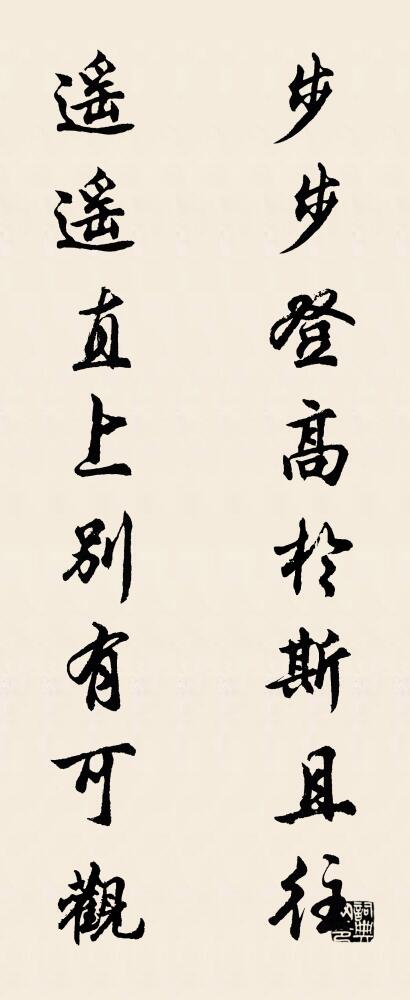 步步登高於斯且往
遥遥直上别有可觀